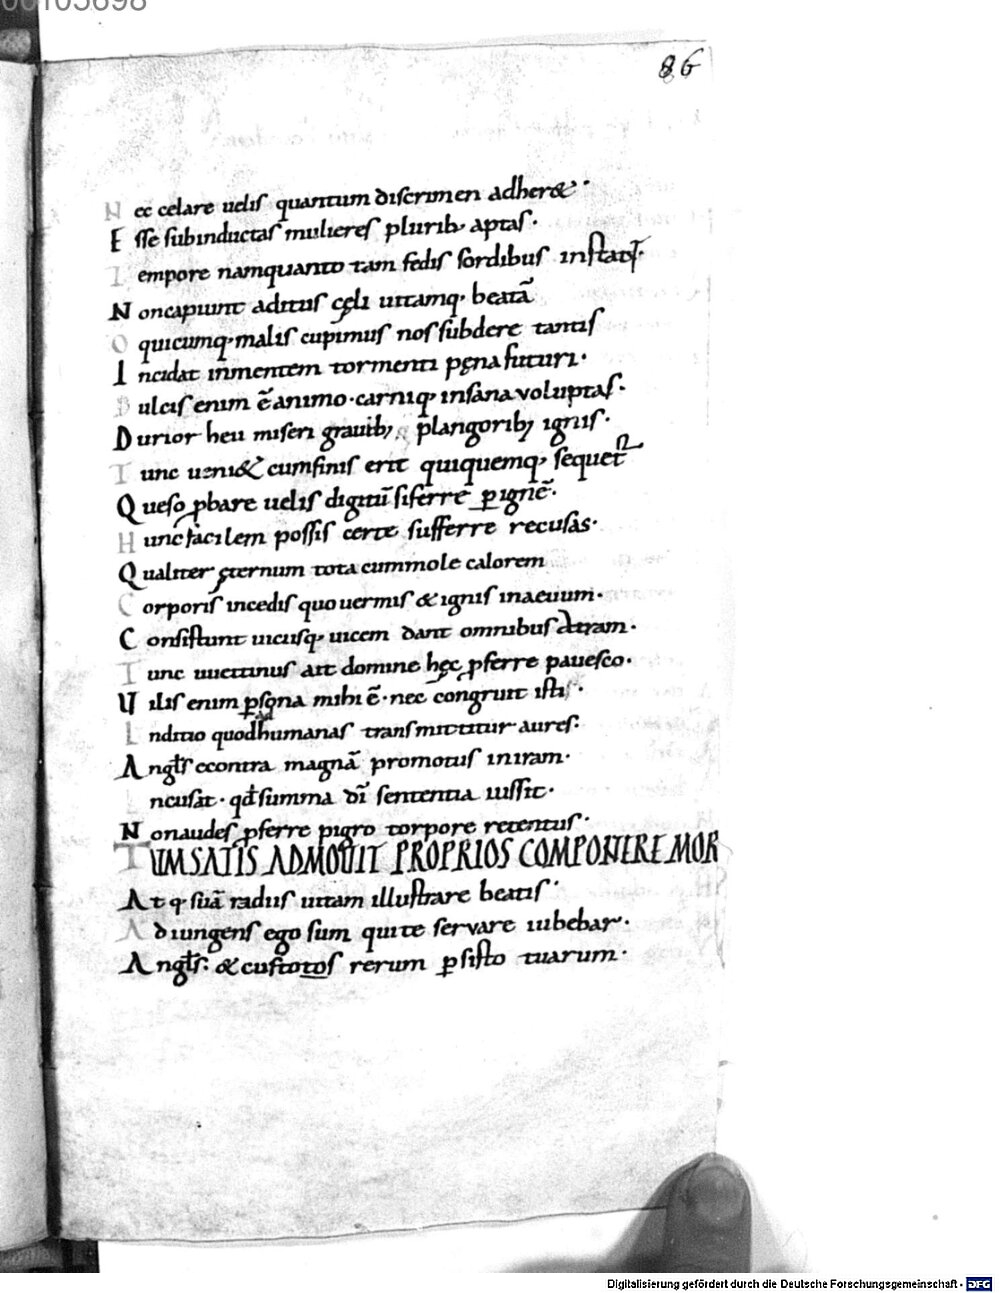 00105698
86
N ec celare uelis quantum discrimen adher&·
E sse subinductas mulieres plurib; aptas·
T empore nam quanto tam fedis sordibus instat
N on capiunt aditus cęli uitamq; beatā
O quicumq; malis cupimus nos subdere tantis
I ncidat in mentem tormenti pęna futuri·
D ulcis enim ē animo· carniq; insana voluptas·
D urior heu miseri grauib; plangoribꝫ ignis·
T unc ueni& cum finis erit quiquemq; sequet᷑
Q ueso ꝓbare uelis dignū si ferre ꝑ ignē·
H unc facilem possis certe sufferre recusas·
Q ualiter ęternum tota cum mole calorem
C orporis incedis quo uermis & ignis in aeuum·
C onsistunt uicusq; uicem dant omnibus &ram·
T unc uuettinus ait domine hęc ꝓferre pauesco·
U ilis enim ꝑsona mihi ē· nec congruit isti·
I nditio quod humanas transmittitur aures·
A ngl̄s econtra magnā promotus in iram·
I ncusat· qđ summa dī sententia iussit·
N on audes ꝓferre pigro torpore retentus·
TUM SATIS ADMOUIT PROPRIOS COMPONERE MOR
A tq; suā radiis uitam illustrare beatis·
A diungens ego sum qui te servare iubebar·
A ngl̄s· & custotos rerum ꝑsisto tuarum·
Digitalisierung gefördert durch die Deutsche Forschungsgemeinschaft - DFG